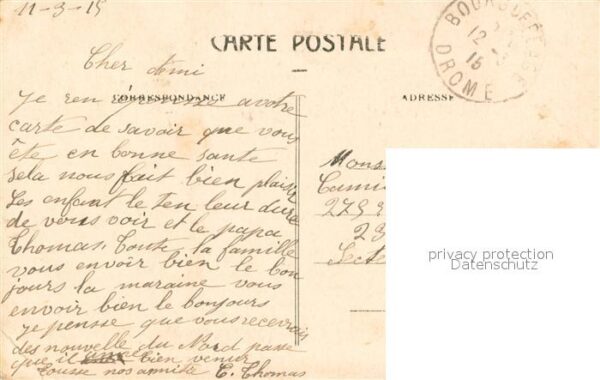 11-3-15
BOURG
DROME
12
15
CARTE POSTALE
Cher ami
CORRESPONDANCE
ADRESSE
Je
avotre
carte de savoir que vous
ête en bonne sante
sela nous fait bien plaisir
Les enfant le ten leur dura
de vous voir et le papa
Thomas. Toute la famille
vous envoir bien le bon
jours la maraine vous
envoir bien le bonjours
Je pensse que vous recevrais
des nouvelle du Nord passe
que il bien venir
Tousse nos amitis C. Thomas
Mons
Cami
privacy protection
Datenschutz